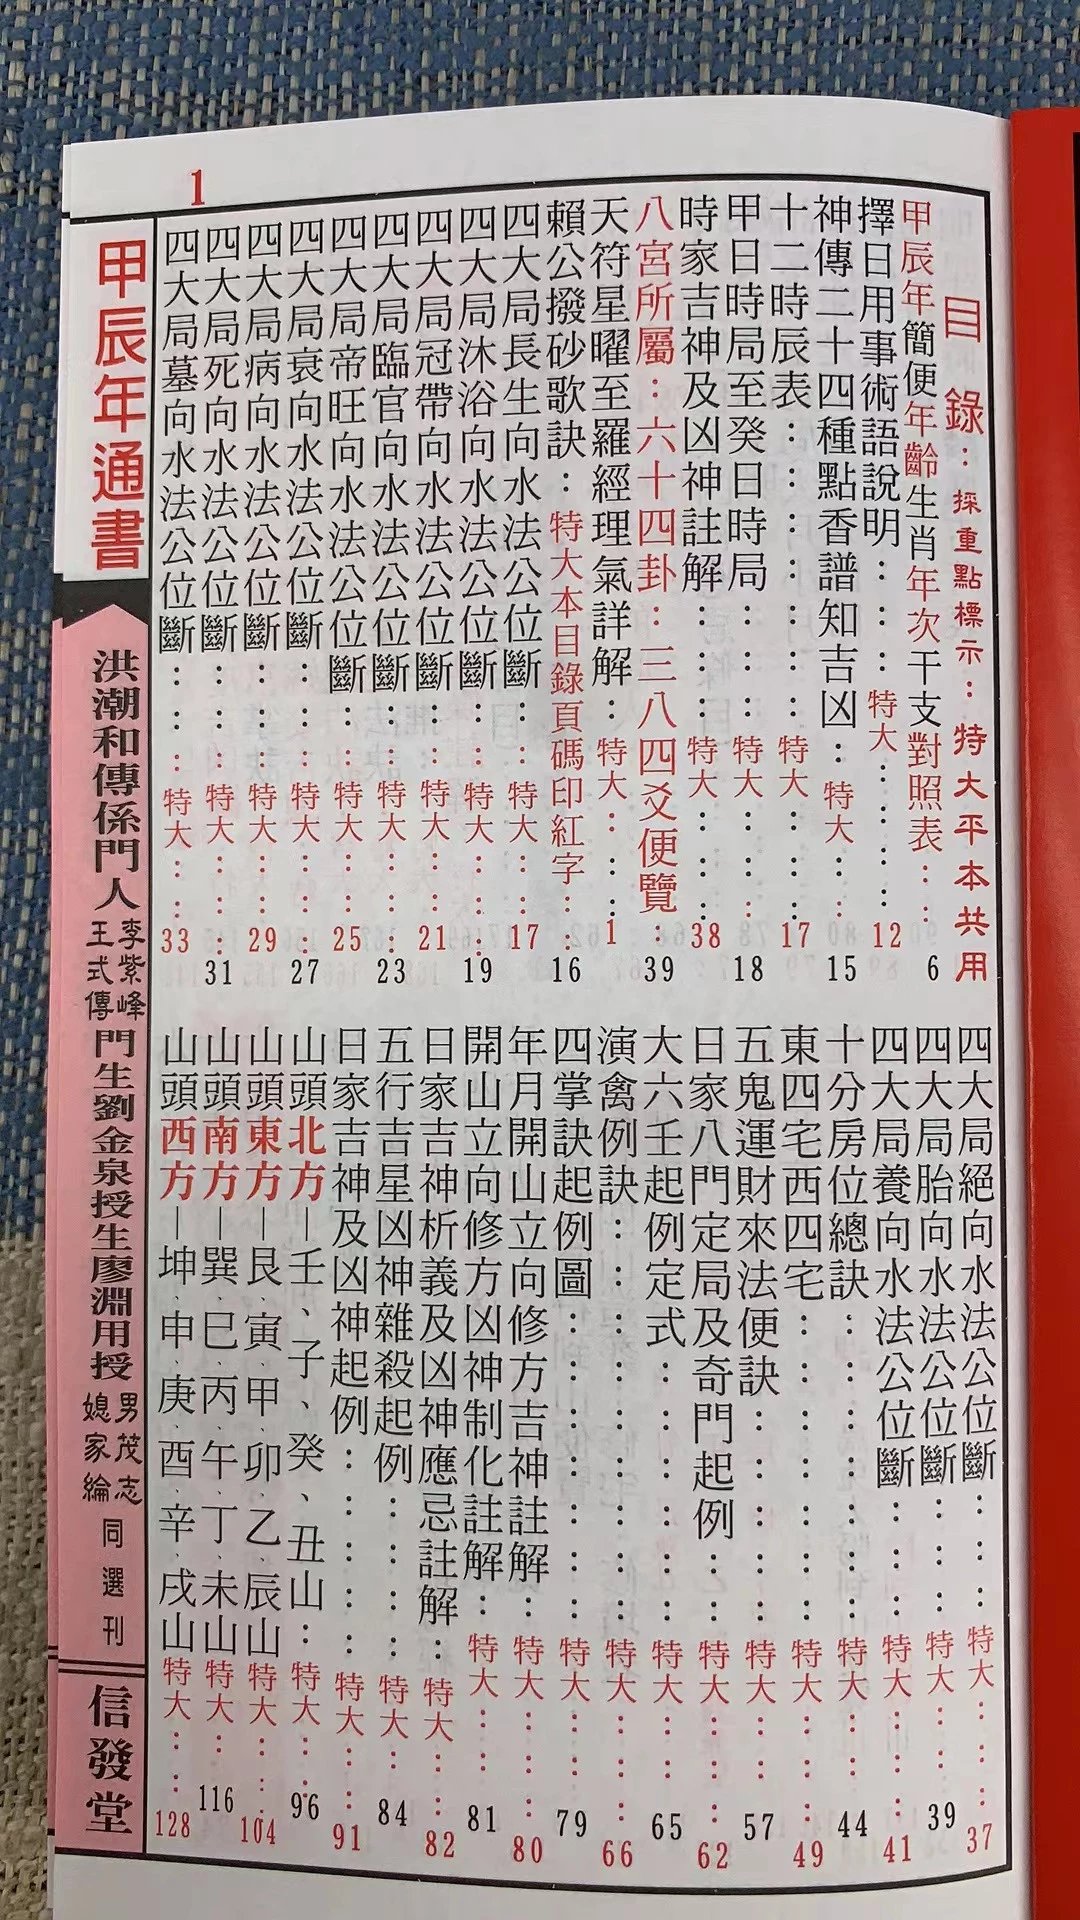 1
目錄：採重點標示：特大平本共用
甲辰年簡便年齡生肖年次干支對照表：：6
擇日用事術語說明：：特大：：：12
神傳二十四種點香譜知吉凶：特大：15
十二時辰表：：：：：：特大：：17
甲日時局至癸日時局：：：特大：：18
時家吉神及凶神註解：：：特大：：38
八宮所屬：六十四卦：三八四爻便覽：39
天符星曜至羅經理氣詳解：特大：：1
賴公撥砂歌訣：特大本目錄頁碼印紅字：16
四大局長生向水法公位斷：特大：：17
四大局沐浴向水法公位斷：特大：：19
四大局冠帶向水法公位斷：特大：：21
四大局臨官向水法公位斷：特大：：23
四大局帝旺向水法公位斷：特大：：25
四大局衰向水法公位斷：：特大：：27
四大局病向水法公位斷：：特大：：29
四大局死向水法公位斷：：特大：：31
四大局墓向水法公位斷：：特大：：33
四大局絕向水法公位斷：：特大：：37
四大局胎向水法公位斷：：特大：：39
四大局養向水法公位斷：：特大：：41
十分房位總訣：：：：特大：：44
東四宅西四宅：：：：特大：：49
五鬼運財來法便訣：：：特大：：57
日家八門定局及奇門起例：特大：：62
大六壬起例定式：：：：特大：：65
演禽例訣：：：：：：特大：：66
四掌訣起例圖：：：：：特大：：79
年月開山立向修方吉神註解：特大：：80
開山立向修方凶神制化註解：特大：：81
日家吉神析義及凶神應忌註解特大：：82
五行吉星凶神雜殺起例：：特大：：84
日家吉神及凶神起例：：：特大：：91
山頭北方—壬、子、癸、丑山：特大：：96
山頭東方—艮．寅．甲．卯．乙．辰山特大：：104
山頭南方—巽．巳．丙．午．丁．未山特大：：116
山頭西方—坤．申．庚．酉．辛．戌山特大：：128
甲辰年通書
洪潮和傳係門人李紫峰王式傳門生劉金泉授生廖淵用授男茂志媳家綸同選刊
信發堂